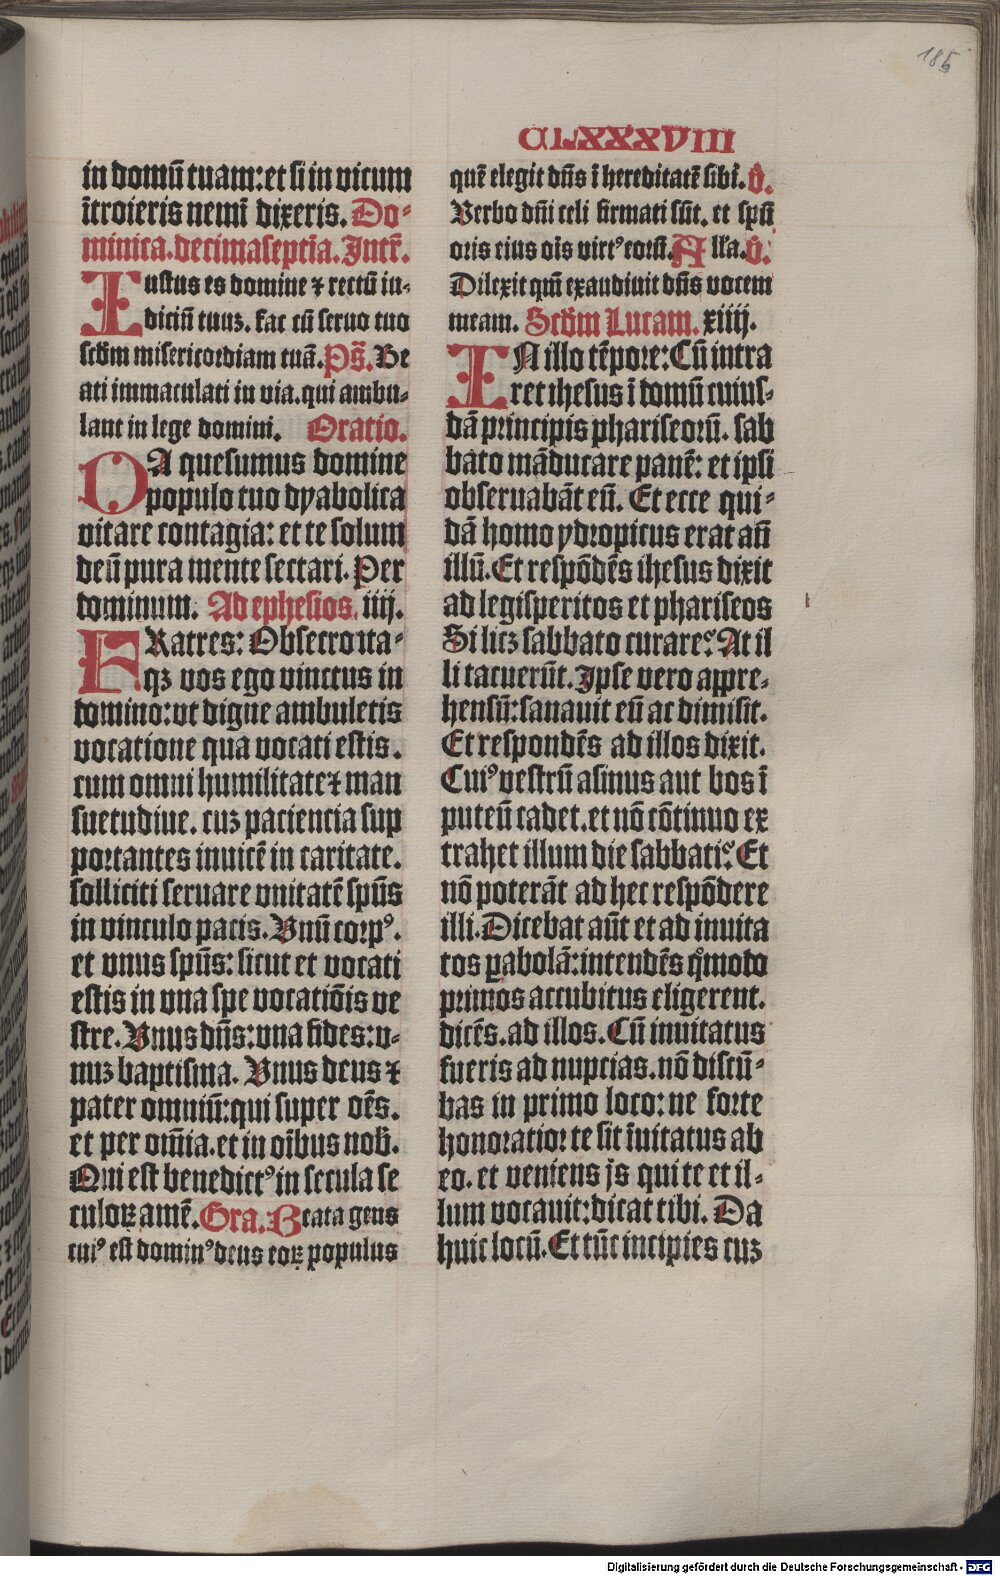 185
CLXXXVIII
in domū tuam: et si in vicum
ītroieris nemī dixeris. Do⸗
minica. decimaseptīa. Intr̄.
Iustus es domine ⁊ rectū iu⸗
diciū tuuꝫ. fac cū seruo tuo
scd̄m misericordiam tuā. Ps̄. Be
ati immaculati in via. qui ambu⸗
lant in lege domini. Oratio.
DA quesumus domine
populo tuo dyabolica
vitare contagia: et te solum
deū pura mente sectari. Per
dominum. Ad ephesios. iiij.
FRatres: Obsecro ita⸗
qꝫ vos ego vinctus in
domino: vt digne ambuletis
vocatione qua vocati estis.
cum omni humilitate ⁊ man
suetudine. cuꝫ paciencia sup
portantes inuicē in caritate.
solliciti seruare vnitatē spūs
in vinculo pacis. Vnū corpꝰ.
et vnus spūs: sicut et vocati
estis in vna spe vocatiōis ve
stre. Vnus dn̄s: vna fides: v⸗
nuꝫ baptisma. Vnus deus ⁊
pater omniū: qui super oēs.
et per om̄ia. et in oībus nob̄.
Qui est benedictꝰ in secula se
culoꝝ amē. Gra. Beata gens
cuiꝰ est dominꝰ deus eoꝝ populus
quē elegit dn̄s ī hereditatē sibī. v̄.
Verbo dn̄i celi firmati sūt. et spū
oris eius oīs virtꝰ eorū. Alla. v̄.
Dilexit qm̄ exaudiuit dn̄s vocem
meam. Scd̄m Lucam. xiiij.
IN illo tēpore: Cū intra
ret ihesus ī domū cuius⸗
dā principis phariseorū. sab
bato māducare panē: et ipsi
obseruabāt eū. Et ecce qui⸗
dā homo ydropicus erat an̄
illū. Et respōdēs ihesus dixit
ad legisperitos et phariseos
Si licꝫ sabbato curare? At il
li tacuerūt. Ipse vero appre⸗
hensū: sanauit eū ac dimisit.
Et respondēs ad illos dixit.
Cuiꝰ vestrū asinus aut bos ī
puteū cadet. et nō cōtinuo ex
trahet illum die sabbati? Et
nō poterāt ad hec respōdere
illi. Dicebat aūt et ad inuita
tos ꝑabolā: intendēs qͦmodo
primos accubitus eligerent.
dicēs. ad illos. Cū inuitatus
fueris ad nupcias. nō discū⸗
bas in primo loco: ne forte
honoratior te sit īuitatus ab
eo. et veniens js qui te et il⸗
lum vocauit: dicat tibi. Da
huic locū. Et tūc incipies cuꝫ
Digitalisierung gefördert durch die Deutsche Forschungsgemeinschaft - DFG